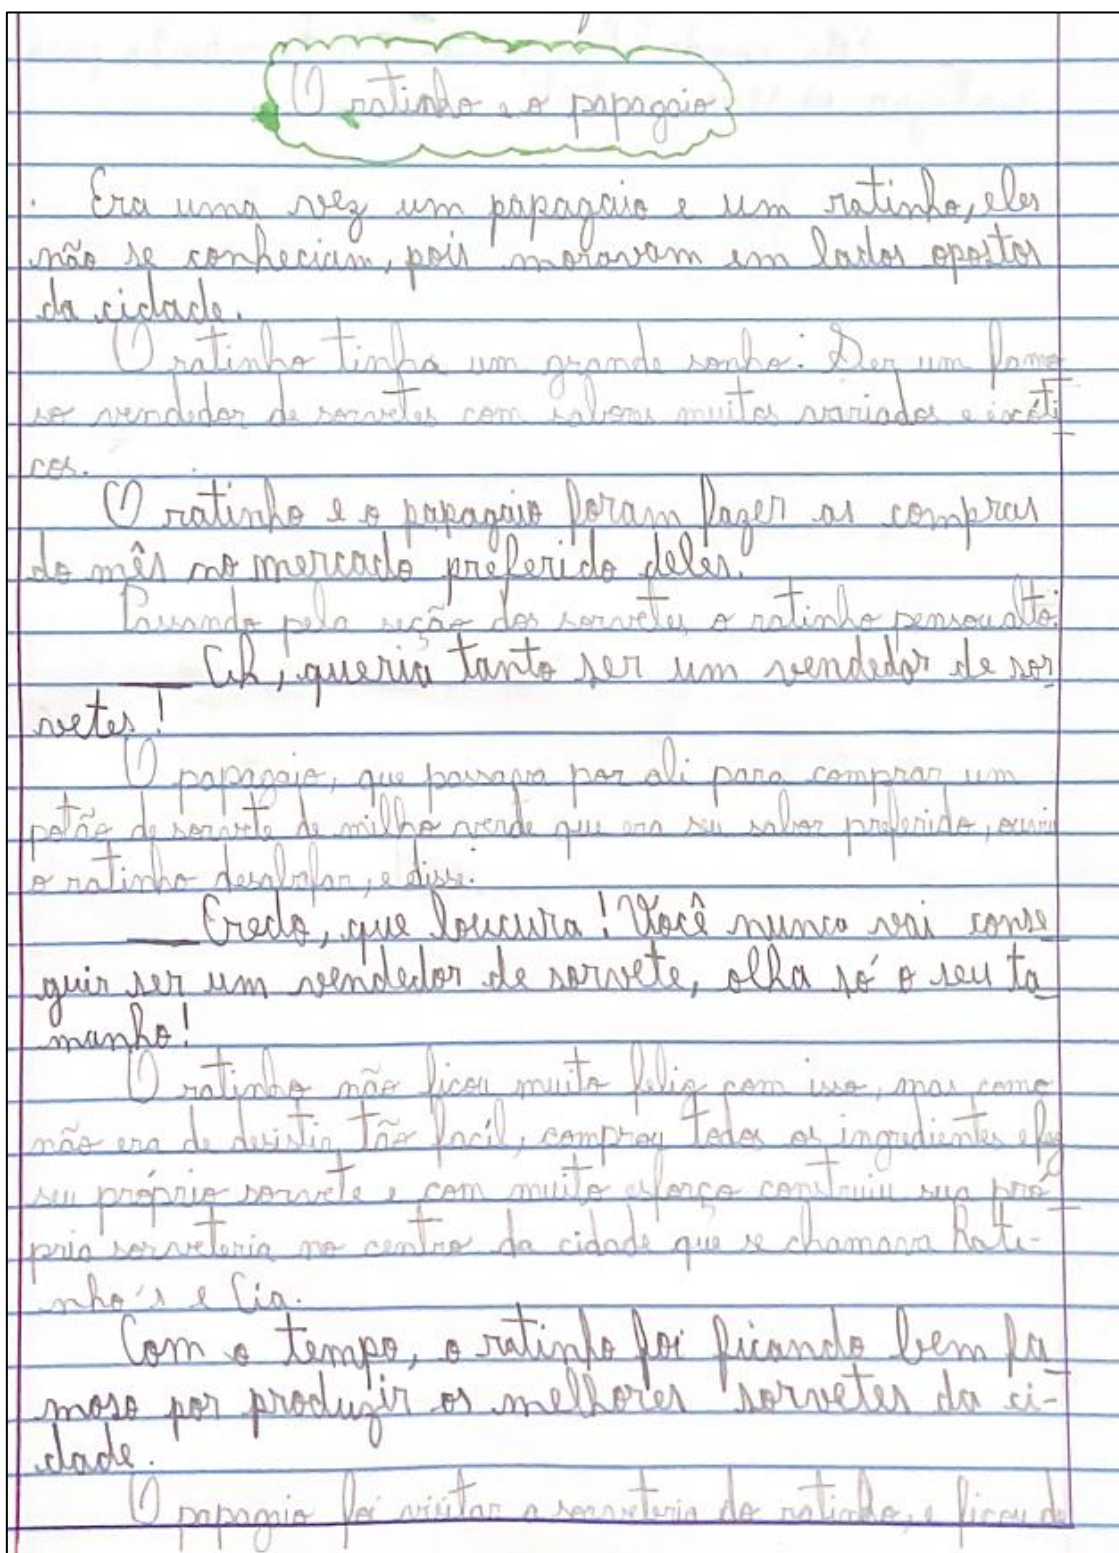 O ratinho e o papagaio
Era uma vez um papagaio e um ratinho, eles
não se conheciam, pois moravam em lados opostos
da cidade.
O ratinho tinha um grande sonho: Ser um famo
so vendedor de sorvetes com sabores muitos variados e exóti
cos.
O ratinho e o papagaio foram fazer as compras
do mês no mercado preferido deles.
Passando pela seção dos sorvetes o ratinho pensou alto:
__ Ah, queria tanto ser um vendedor de sor
vetes!
O papagaio, que passava por ali para comprar um
potão de sorvete de milho verde que era seu sabor preferido, ouviu
o ratinho desabafar, e disse:
__ Credo, que loucura! Você nunca vai conse
guir ser um vendedor de sorvete, olha só o seu ta
manho!
O ratinho não ficou muito feliz com isso, mas como
não era de desistir tão facíl, comprou todos os ingredientes e fez
seu próprio sorvete e com muito esforço construiu sua pró
pria sorveteria no centro da cidade que se chamava Rati-
nho's e Cia.
Com o tempo, o ratinho foi ficando bem fa
moso por produzir os melhores sorvetes da ci-
dade.
O papagaio foi visitar a sorveteria do ratinho, e ficou de